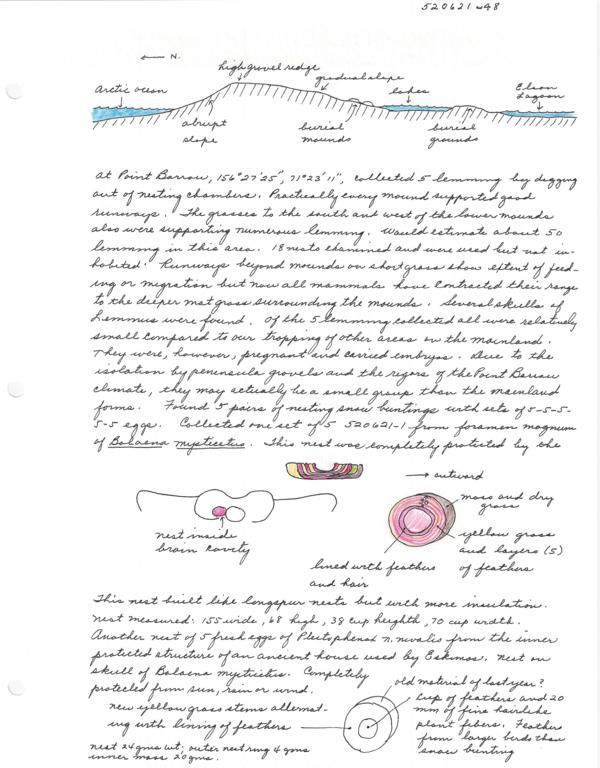 520621-48
← N.
high gravel redge
gradual slope
Arctic ocean
lakes
Elson
Lagoon
abrupt
slope
burial
mounds
burial
grounds
at Point Barrow, 156°27'25", 71°23'11", collected 5 lemming by digging
out of nesting chambers. Practically every mound supported good
runways. The grasses to the south and west of the lower mounds
also were supporting numerous lemming. Would estimate about 50
lemming in this area. 18 nests examined and were used but not in-
habited. Runways beyond mounds on short grass show extent of feed-
ing or migration but now all mammals have contracted their range
to the deeper mat grass surrounding the mounds. Several skulls of
Lemmus were found. Of the 5 lemming collected all were relatively
small compared to our trapping of other areas on the mainland.
They were, however, pregnant and carried embryos. Due to the
isolation by penensula gravels and the regors of the Point Barrow
climate, they may actually be a small group than the mainland
forms. Found 5 pairs of nesting snow buntings with sets of 5-5-5-
5-5 eggs. Collected one set of 5 520621-1 from foramen magnum
of Balaena mysticetus. This nest was completely protected by the
→ outward
moss and dry
grass
nest inside
brain cavity
yellow grass
and layers (5)
of feathers
lined with feathers
and hair
This nest built like longspur nests but with more insulation.
nest measured: 155 wide, 68 high, 38 cup heighth, 70 cup width.
Another nest of 5 fresh eggs of Plectophenax n. nivalis from the inner
protected structure of an ancient house used by Eskimos. nest on
skull of Balaena mysticetus. Completely
protected from sun, rain or wind.
old material of last year?
new yellow grass stems alternat-
ing with lining of feathers
cup of feathers and 20
mm of fine hairlike
plant fibers. Feathers
from larger birds than
snow bunting
nest 24 gms wt; outer nest ring 4 gms
inner mass 20 gms.